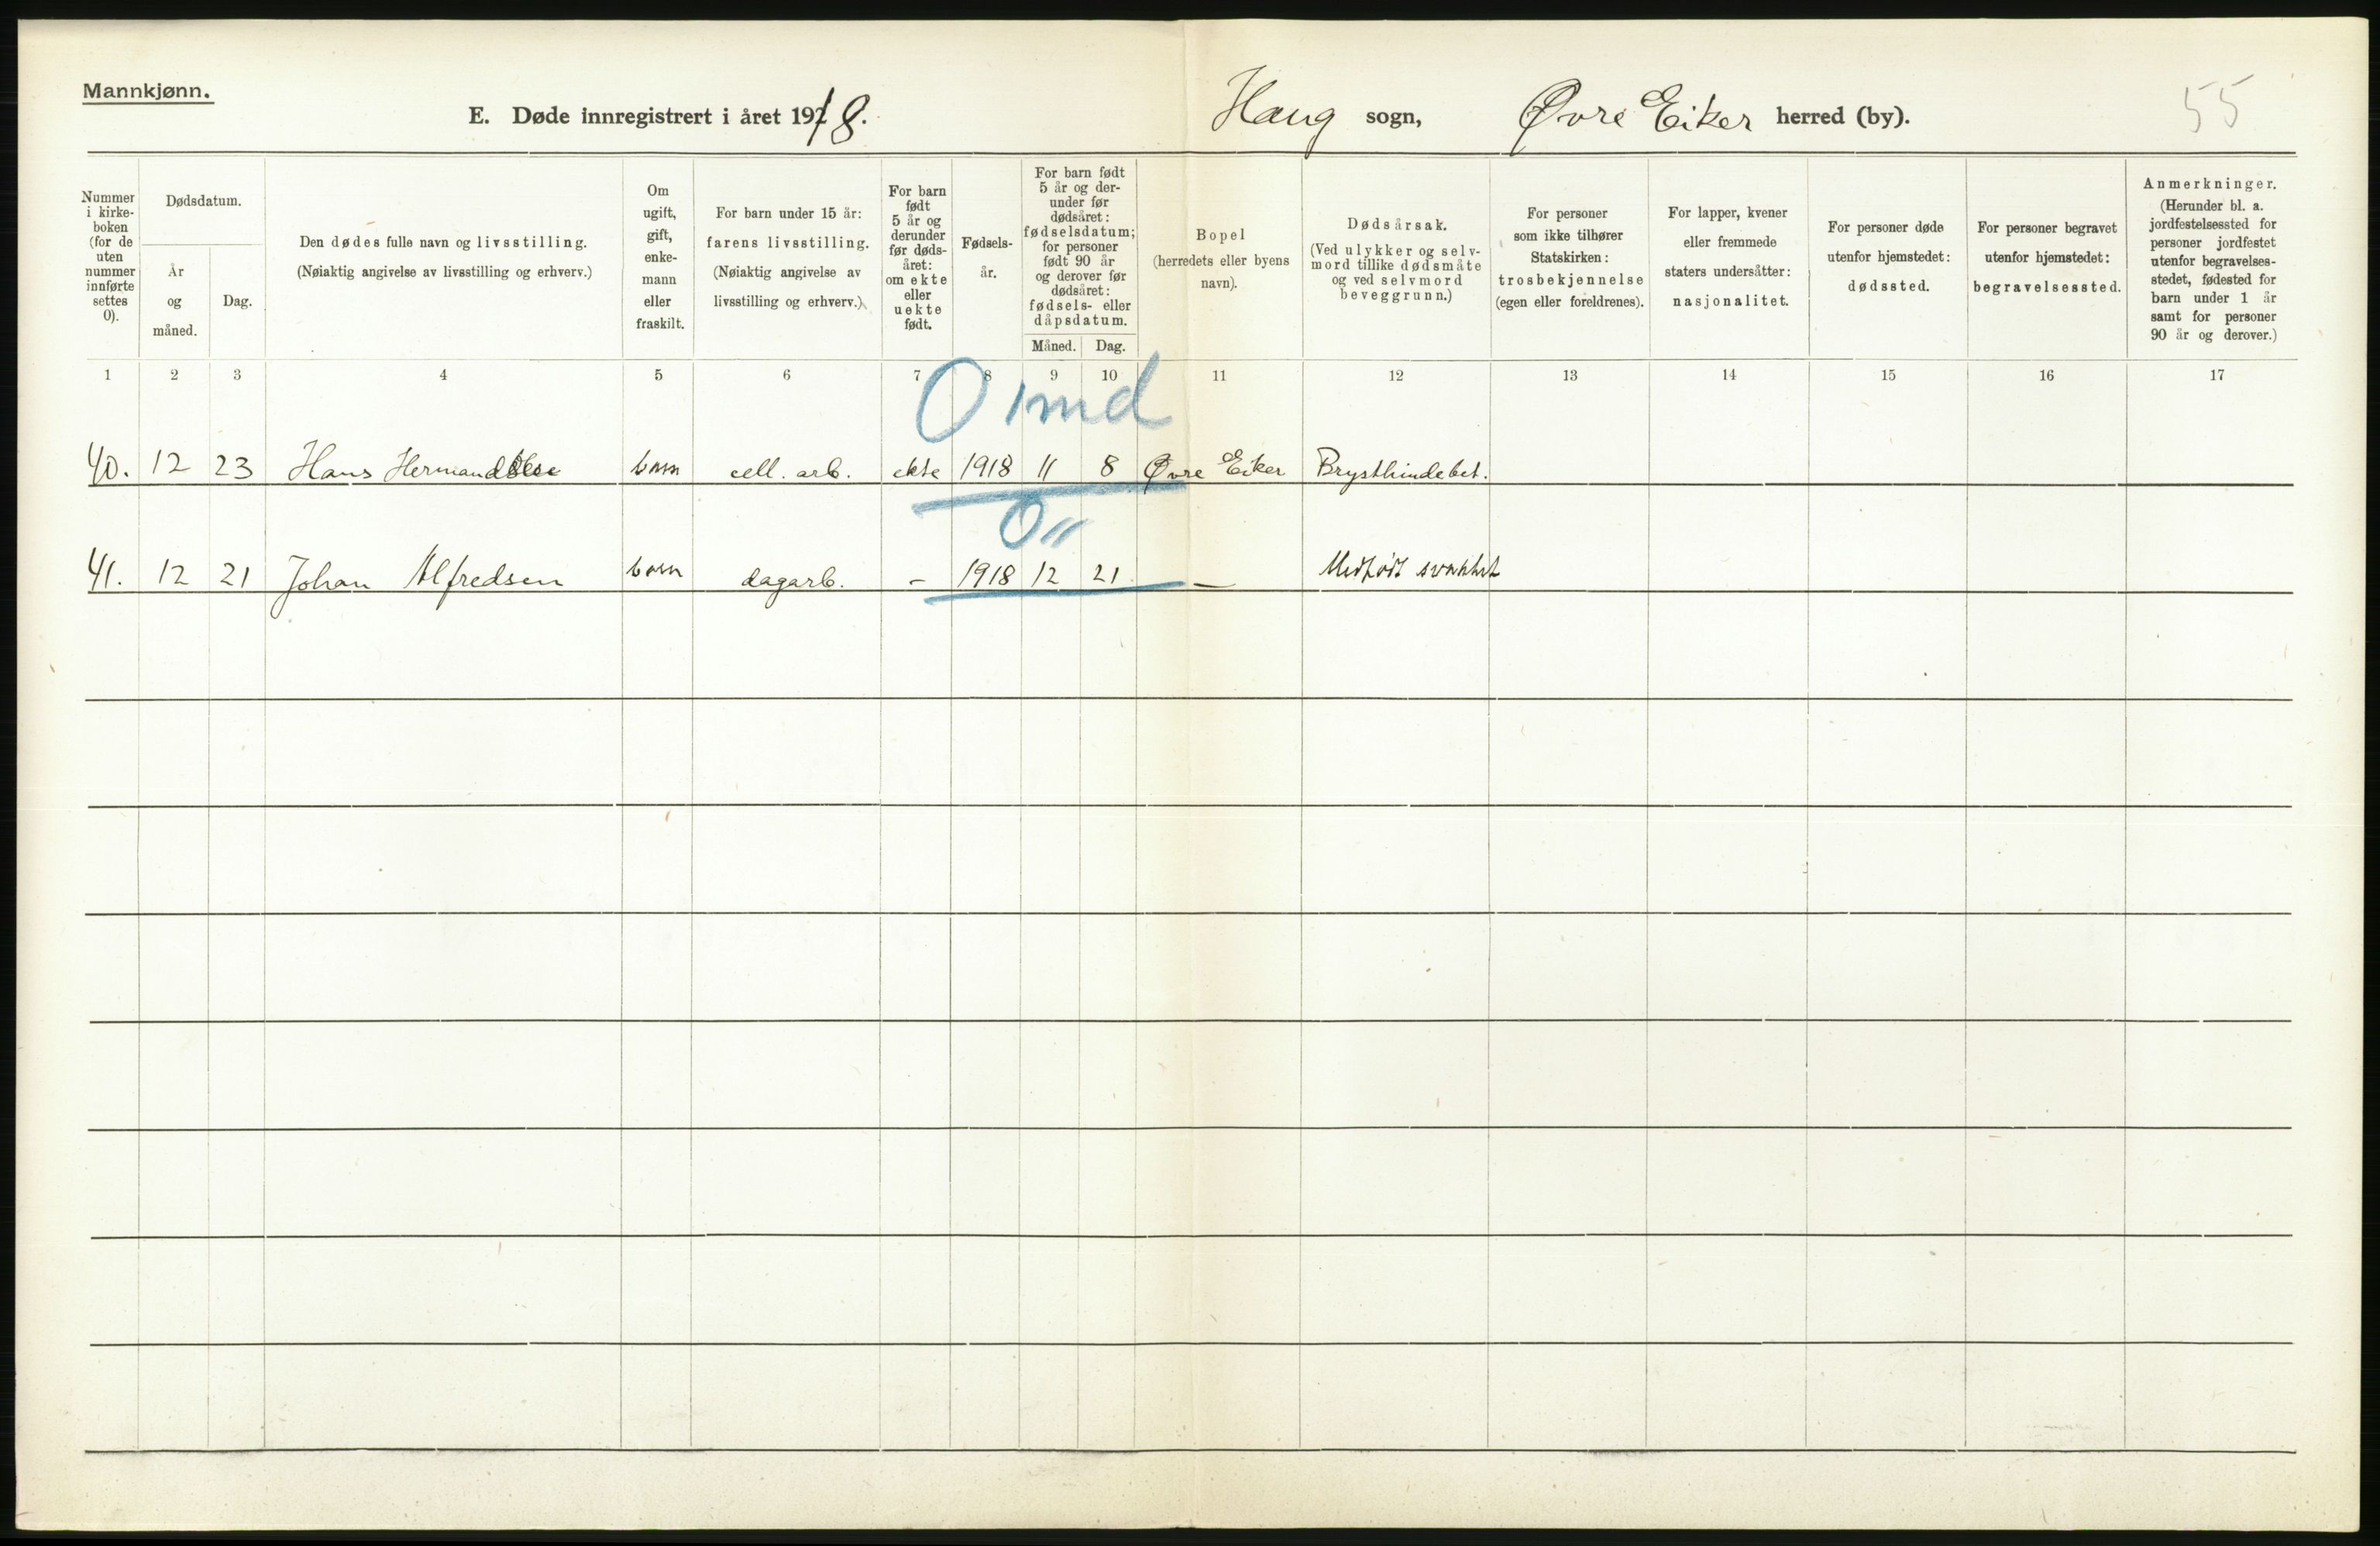 Mannkjønn.
E. Døde innregistrert i året 1918.
Haug sogn, Øvre Eiker herred (by).
55
Nummer i kirke- boken (for de uten nummer innførte settes 0).
Dødsdatum.
År og måned.
Dag.
Den dødes fulle navn og livsstilling.
(Nøiaktig angivelse av livsstilling og erhverv.)
Om ugift, gift, enke- mann eller fraskilt.
For barn under 15 år:
farens livsstilling.
(Nøiaktig angivelse av
livsstilling og erhverv.)
For barn født 5 år og derunder før døds- året: om ekte eller uekte født.
Fødsels- år.
For barn født 5 år og der- under før dødsåret: fødselsdatum; for personer født 90 år og derover før dødsåret: fødsels- eller dåpsdatum.
Måned. Dag.
Bopel
(herredets eller byens navn).
Dødsårsak.
(Ved ulykker og selv- mord tillike dødsmåte og ved selvmord beveggrunn.)
For personer som ikke tilhører Statskirken: trosbekjennelse (egen eller foreldrenes).
For lapper, kvener eller fremmede staters undersåtter: nasjonalitet.
For personer døde utenfor hjemstedet: dødssted.
For personer begravet utenfor hjemstedet: begravelsessted.
Anmerkninger.
(Herunder bl. a. jordfestelsessted for personer jordfestet utenfor begravelses- stedet, fødested for barn under 1 år samt for personer 90 år og derover.)
1 2 3 4 5 6 7 8 9 10 11 12 13 14 15 16 17
0 1 md
40. 12 23 Hans Hermand barn cell. arb. ekte 1918 11 8 Øvre Eiker Brysthindebet.
0 "
41. 12 21 Johan Alfredsen barn dagarb. – 1918 12 21 – Medfødt svakhet